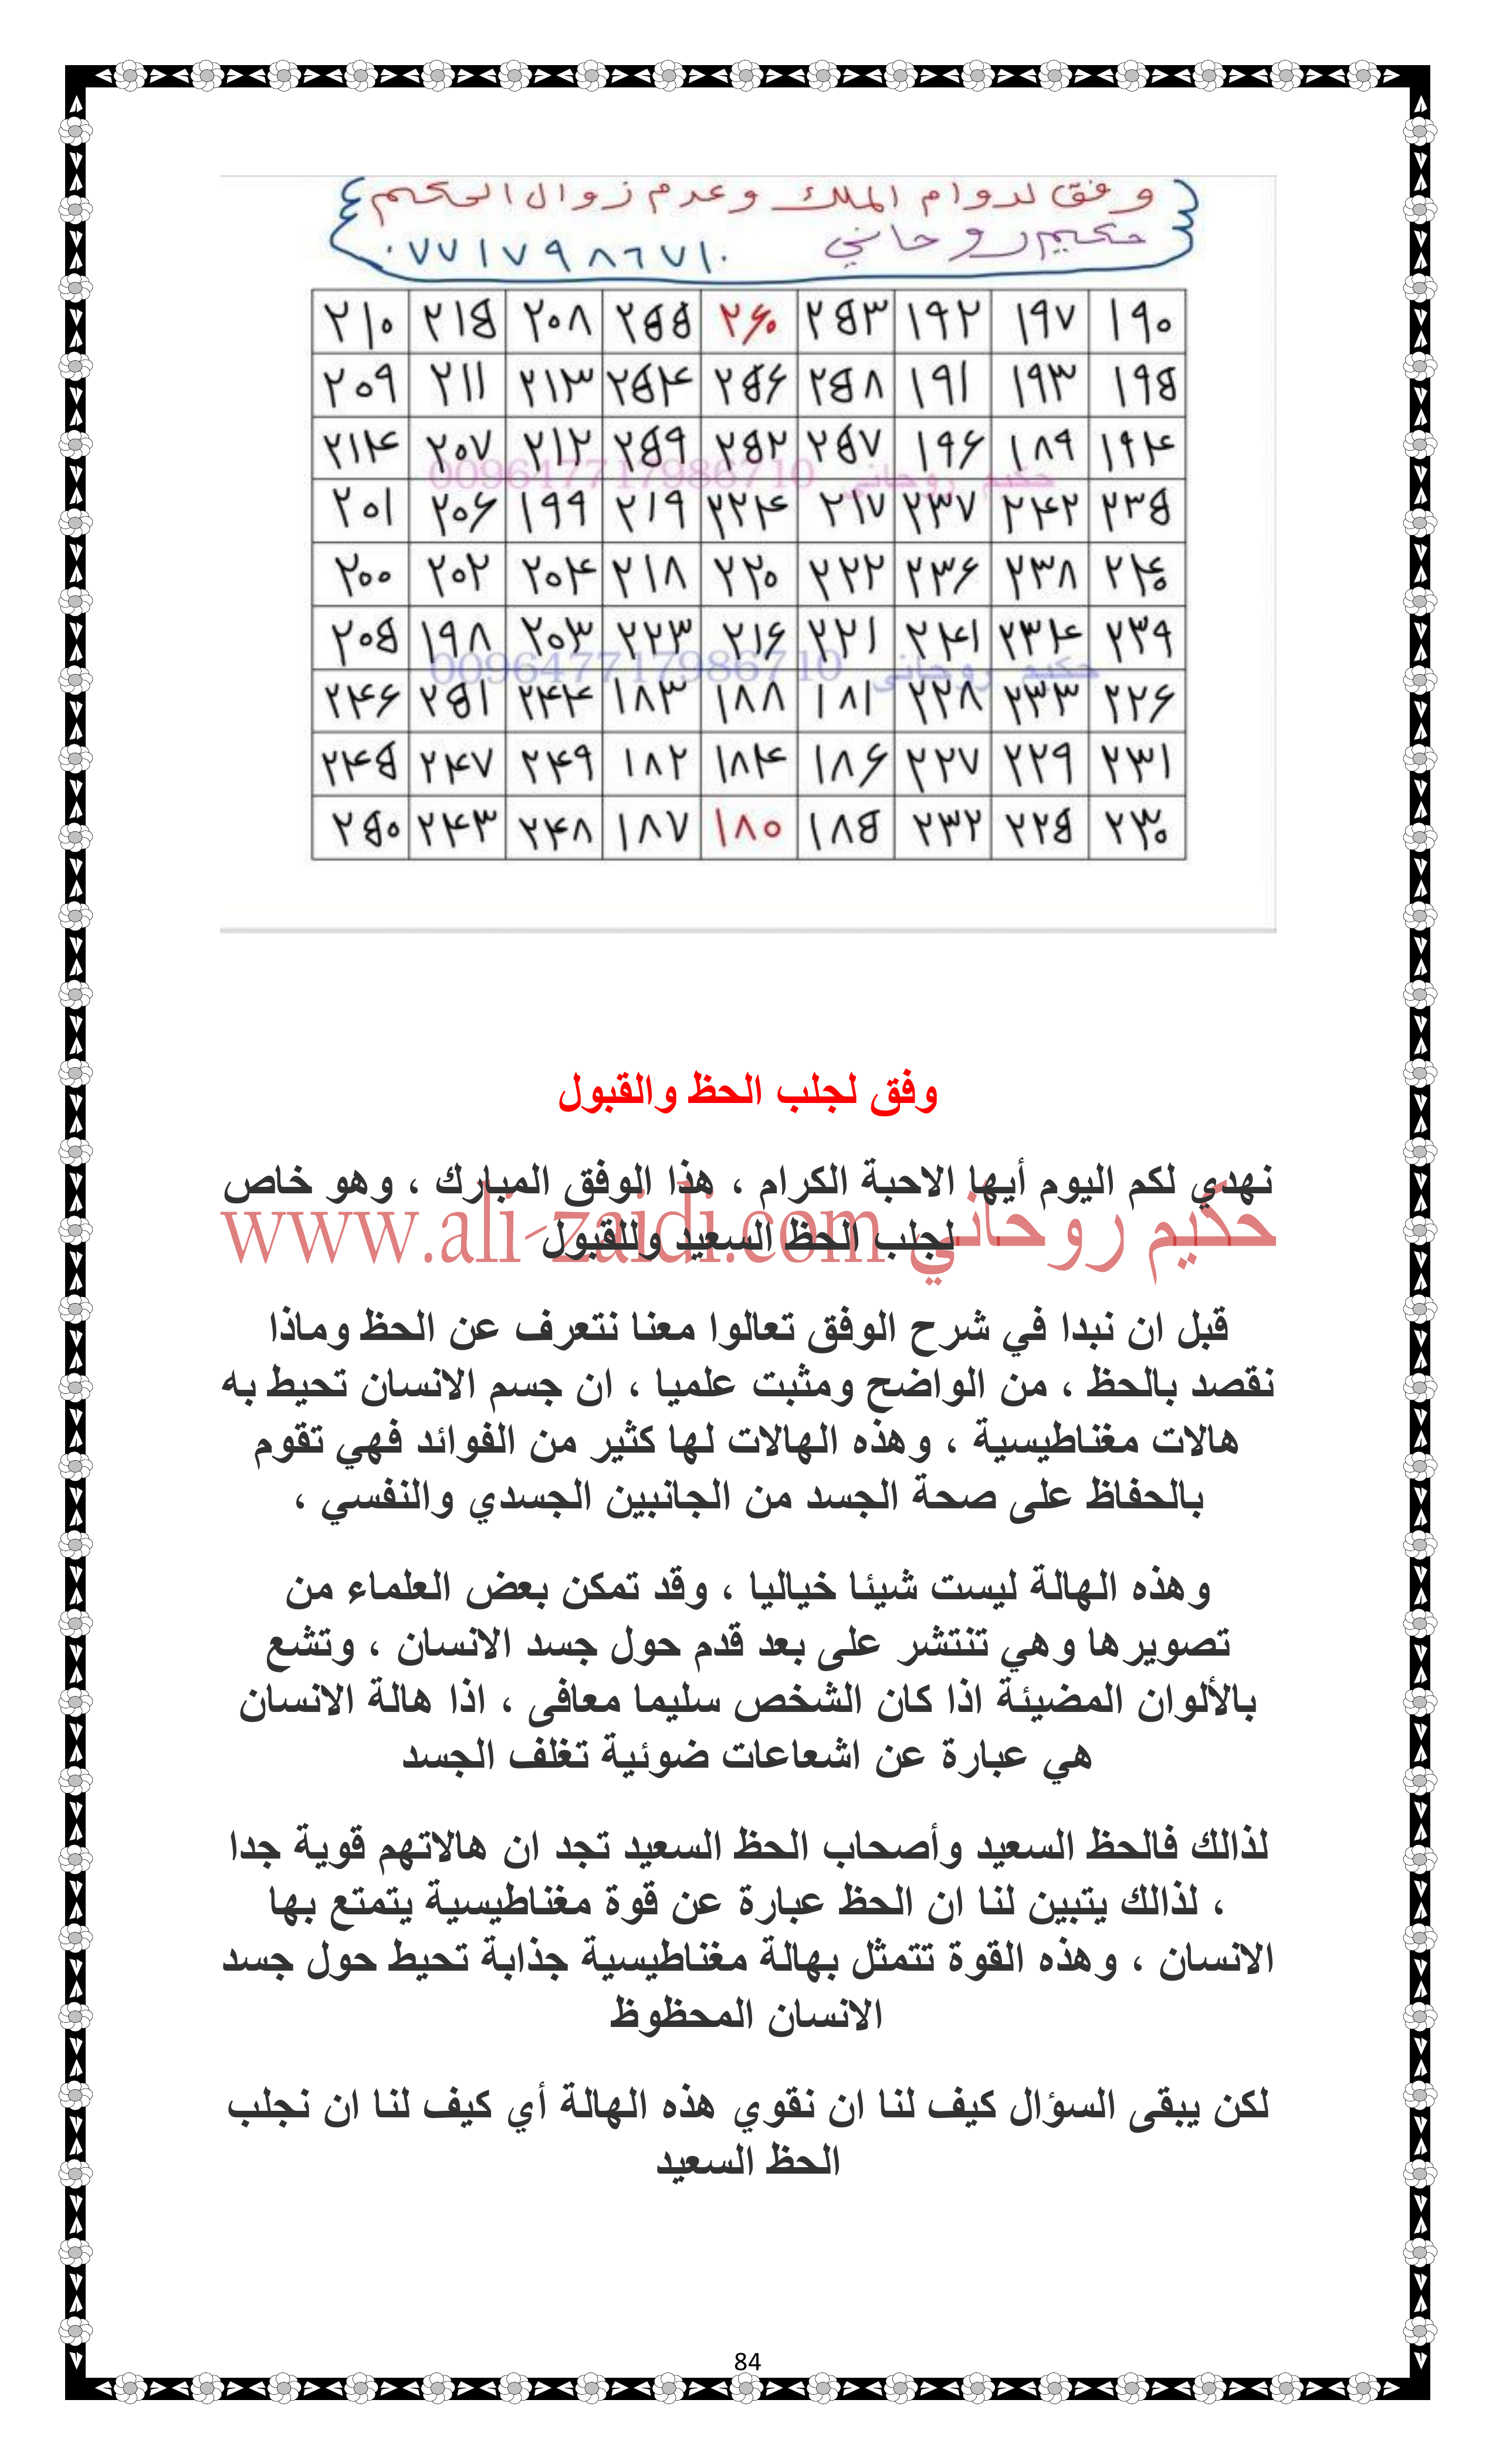 وفق لدوام الملك وعدم زوال الحكم
حكيم روحاني ٠٧٧١٧٩٨٦٧١٠
٢١٠ ٢١٥ ٢٠٨ ٢٥٥ ٢۶٠ ٢٥٣ ١٩٢ ١٩٧ ١٩٠
٢٠٩ ٢١١ ٢١٣ ٢٥۴ ٢٥۶ ٢٥٨ ١٩١ ١٩٣ ١٩٥
٢١۴ ٢٠٧ ٢١٢ ٢٥٩ ٢٥٢ ٢٥٧ ١٩۶ ١٨٩ ١٩۴
حكيم روحاني 009647717986710
٢٠١ ٢٠۶ ١٩٩ ٢١٩ ٢٢۴ ٢١٧ ٢٣٧ ٢۴٢ ٢٣٥
٢٠٠ ٢٠٢ ٢٠۴ ٢١٨ ٢٢٠ ٢٢٢ ٢٣۶ ٢٣٨ ٢۴٠
٢٠٥ ١٩٨ ٢٠٣ ٢٢٣ ٢١۶ ٢٢١ ٢۴١ ٢٣۴ ٢٣٩
حكيم روحاني 009647717986710
٢۴۶ ٢٥١ ٢۴۴ ١٨٣ ١٨٨ ١٨١ ٢٢٨ ٢٣٣ ٢٢۶
٢۴٥ ٢۴٧ ٢۴٩ ١٨٢ ١٨۴ ١٨۶ ٢٢٧ ٢٢٩ ٢٣١
٢٥٠ ٢۴٣ ٢۴٨ ١٨٧ ١٨٠ ١٨٥ ٢٣٢ ٢٢٥ ٢٣٠
وفق لجلب الحظ والقبول
نهدي لكم اليوم أيها الاحبة الكرام ، هذا الوفق المبارك ، وهو خاص
لجلب الحظ السعيد وللقبول
حكيم روحاني www.ali-zaidi.com
قبل ان نبدا في شرح الوفق تعالوا معنا نتعرف عن الحظ وماذا
نقصد بالحظ ، من الواضح ومثبت علميا ، ان جسم الانسان تحيط به
هالات مغناطيسية ، وهذه الهالات لها كثير من الفوائد فهي تقوم
بالحفاظ على صحة الجسد من الجانبين الجسدي والنفسي ،
وهذه الهالة ليست شيئا خياليا ، وقد تمكن بعض العلماء من
تصويرها وهي تنتشر على بعد قدم حول جسد الانسان ، وتشع
بالألوان المضيئة اذا كان الشخص سليما معافى ، اذا هالة الانسان
هي عبارة عن اشعاعات ضوئية تغلف الجسد
لذالك فالحظ السعيد وأصحاب الحظ السعيد تجد ان هالاتهم قوية جدا
، لذالك يتبين لنا ان الحظ عبارة عن قوة مغناطيسية يتمتع بها
الانسان ، وهذه القوة تتمثل بهالة مغناطيسية جذابة تحيط حول جسد
الانسان المحظوظ
لكن يبقى السؤال كيف لنا ان نقوي هذه الهالة أي كيف لنا ان نجلب
الحظ السعيد
84